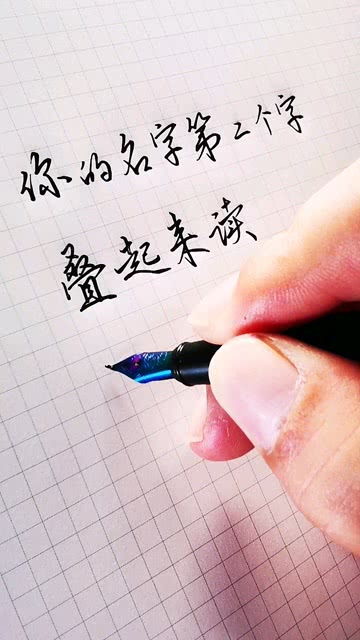 你的名字第二个字
叠起来读